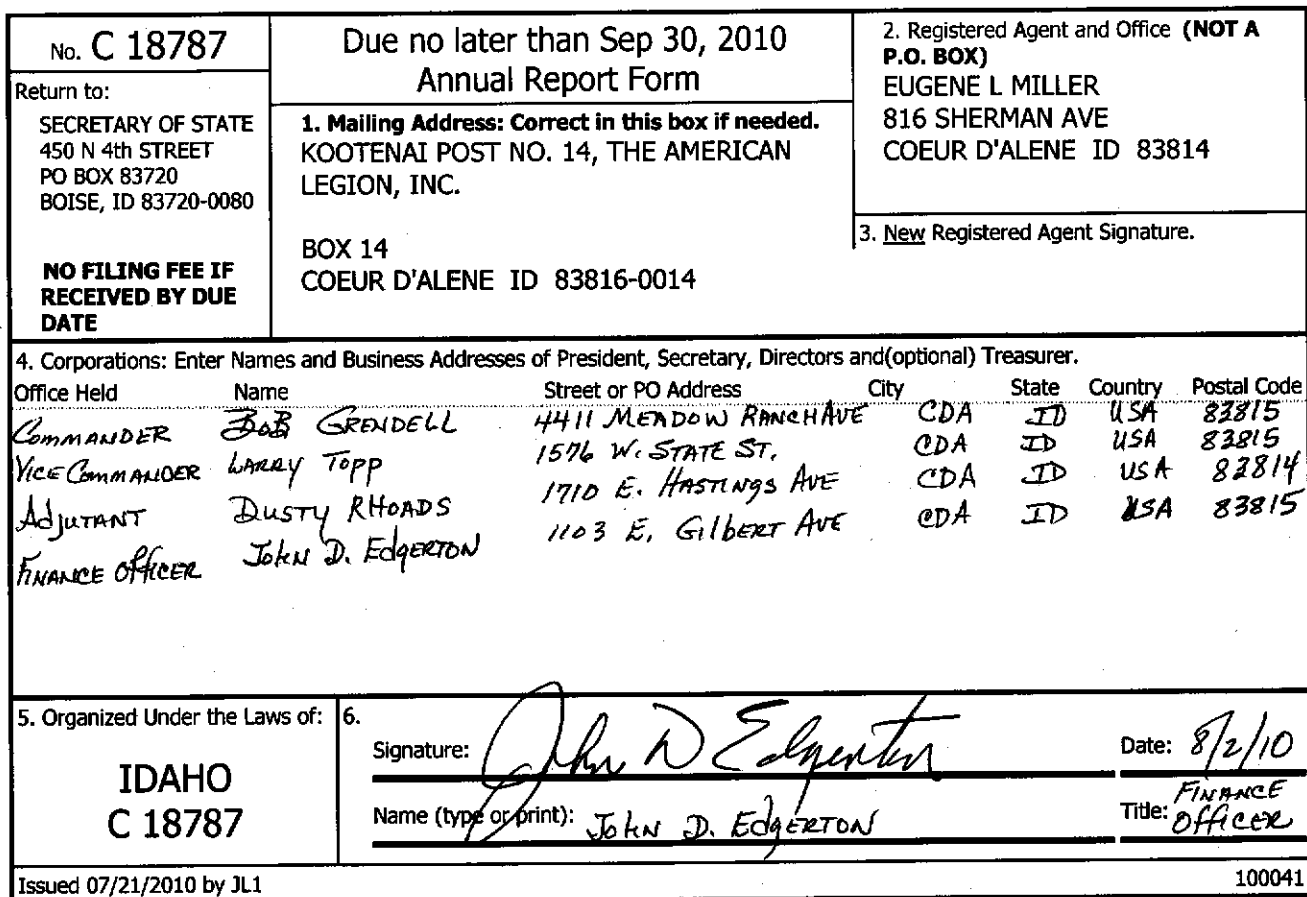 No. C 18787
Return to:
SECRETARY OF STATE
450 N 4th STREET
PO BOX 83720
BOISE, ID 83720-0080
NO FILING FEE IF
RECEIVED BY DUE
DATE
Due no later than Sep 30, 2010
Annual Report Form
1. Mailing Address: Correct in this box if needed.
KOOTENAI POST NO. 14, THE AMERICAN
LEGION, INC.
BOX 14
COEUR D'ALENE ID 83816-0014
2. Registered Agent and Office (NOT A
P.O. BOX)
EUGENE L MILLER
816 SHERMAN AVE
COEUR D'ALENE ID 83814
3. New Registered Agent Signature.
4. Corporations: Enter Names and Business Addresses of President, Secretary, Directors and(optional) Treasurer.
Office Held Name Street or PO Address City State Country Postal Code
COMMANDER BOB GRENDELL 4411 MEADOW RANCH AVE CDA ID USA 83815
VICE COMMANDER LARRY TOPP 1576 W. STATE ST. CDA ID USA 83815
AdJUTANT DUSTY RHOADS 1710 E. HASTINGS AVE CDA ID USA 83814
FINANCE OFFICER JOHN D. EDGERTON 1103 E. GILBERT AVE CDA ID USA 83815
5. Organized Under the Laws of:
IDAHO
C 18787
6.
Signature: John D Edgerton Date: 8/2/10
Name (type or print): JOHN D. EDGERTON Title: FINANCE OFFICER
Issued 07/21/2010 by JL1 100041